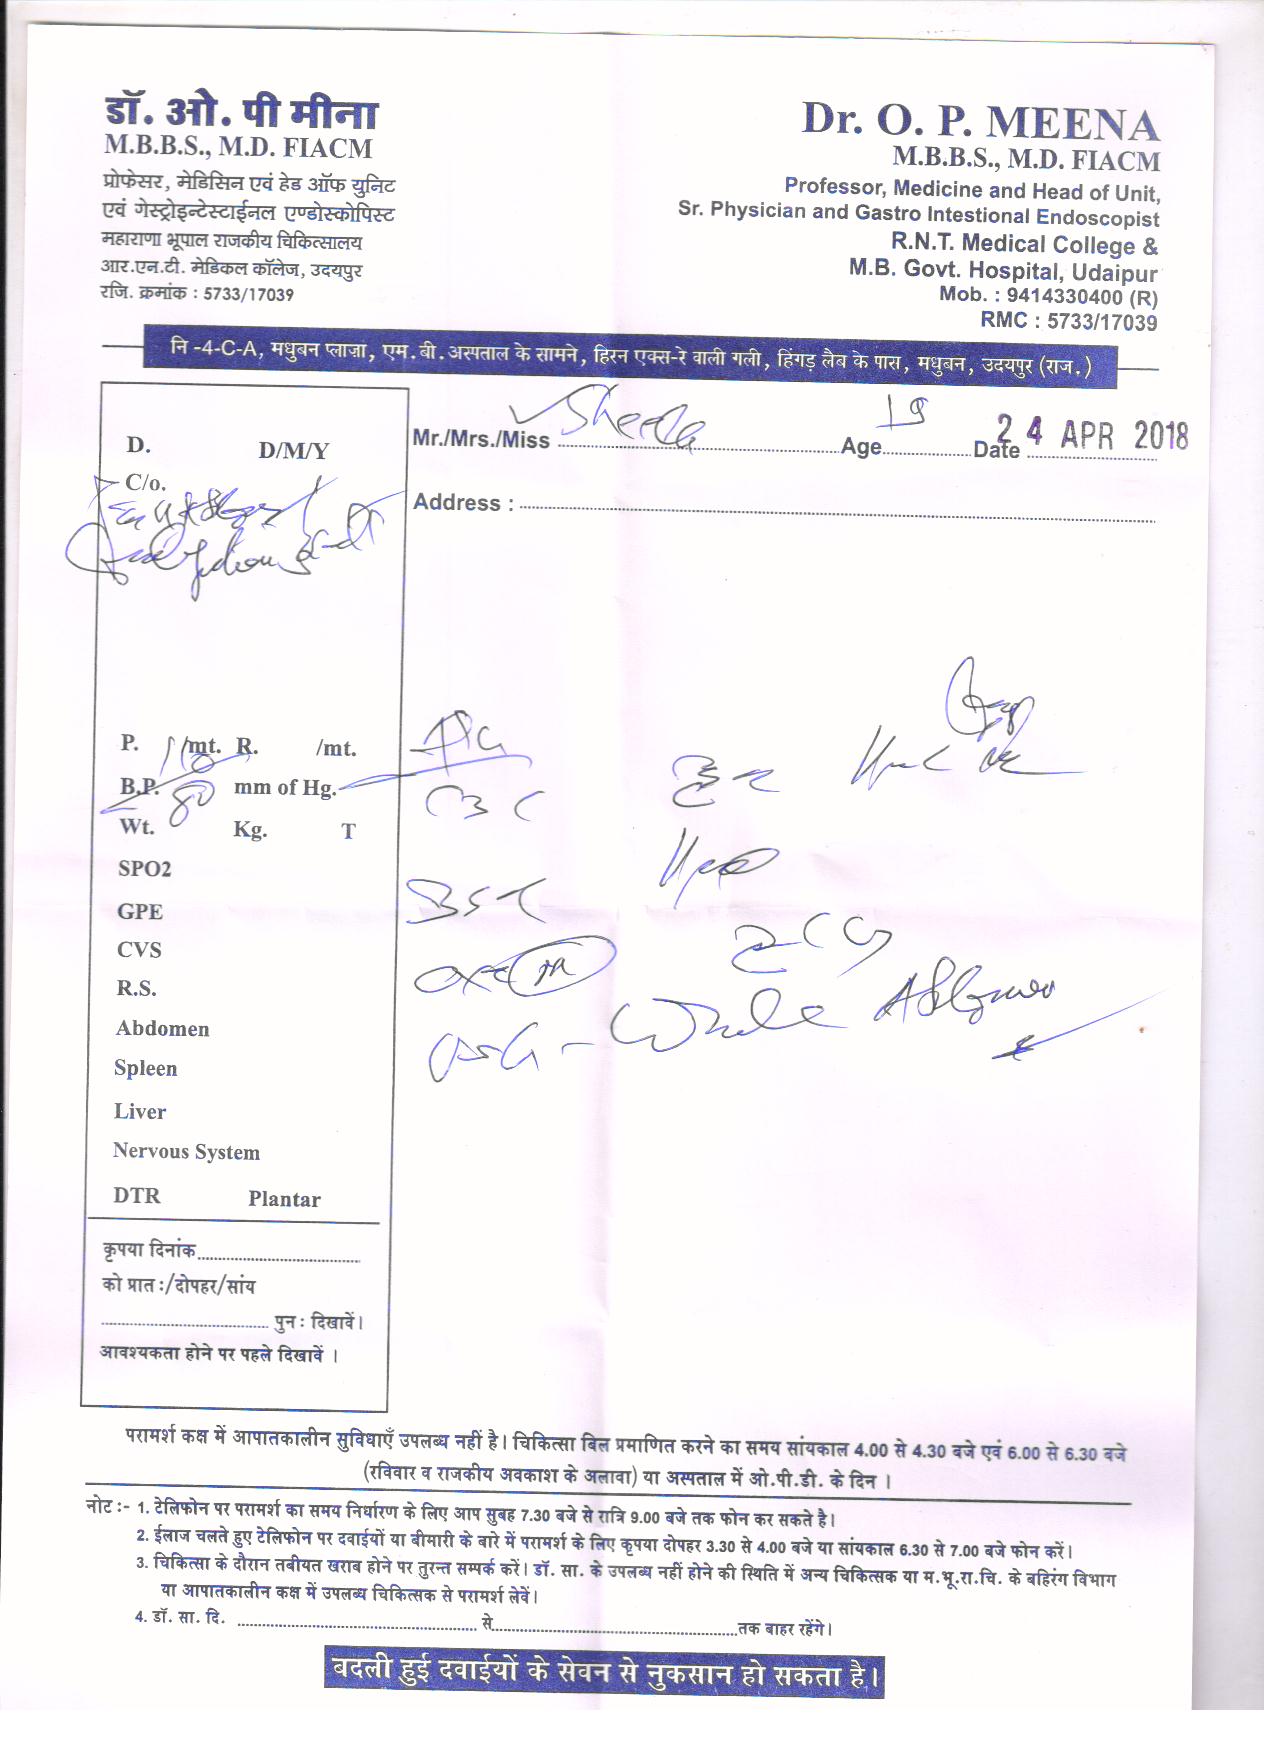 डॉ. ओ. पी मीना
M.B.B.S., M.D. FIACM
प्रोफेसर, मेडिसिन एवं हेड ऑफ युनिट
एवं गेस्ट्रोइन्टेस्टाईनल एण्डोस्कोपिस्ट
महाराणा भूपाल राजकीय चिकित्सालय
आर.एन.टी. मेडिकल कॉलेज, उदयपुर
रजि. क्रमांक : 5733/17039
Dr. O. P. MEENA
M.B.B.S., M.D. FIACM
Professor, Medicine and Head of Unit,
Sr. Physician and Gastro Intestional Endoscopist
R.N.T. Medical College &
M.B. Govt. Hospital, Udaipur
Mob. : 9414330400 (R)
RMC : 5733/17039
नि -4-C-A, मधुबन प्लाज़ा, एम.बी.अस्पताल के सामने, हिरन एक्स-रे वाली गली, हिंगड़ लैब के पास, मधुबन, उदयपुर (राज.)
Mr./Mrs./Miss Sheela Age 19 Date 24 APR 2018
Address :
D. D/M/Y
C/o.
P. /mt. R. /mt.
B.P. 110/80 mm of Hg.
Wt. Kg. T
SPO2
GPE
CVS
R.S.
Abdomen
Spleen
Liver
Nervous System
DTR Plantar
CBC
Whole Abdomen
कृपया दिनांक
को प्रात :/दोपहर/सांय
पुन : दिखावें।
आवश्यकता होने पर पहले दिखावें ।
परामर्श कक्ष में आपातकालीन सुविधाएँ उपलब्ध नहीं है। चिकित्सा बिल प्रमाणित करने का समय सांयकाल 4.00 से 4.30 बजे एवं 6.00 से 6.30 बजे
(रविवार व राजकीय अवकाश के अलावा) या अस्पताल में ओ.पी.डी. के दिन ।
नोट :- 1. टेलिफोन पर परामर्श का समय निर्धारण के लिए आप सुबह 7.30 बजे से रात्रि 9.00 बजे तक फोन कर सकते है।
2. ईलाज चलते हुए टेलिफोन पर दवाईयों या बीमारी के बारे में परामर्श के लिए कृपया दोपहर 3.30 से 4.00 बजे या सांयकाल 6.30 से 7.00 बजे फोन करें।
3. चिकित्सा के दौरान तबीयत खराब होने पर तुरन्त सम्पर्क करें। डॉ. सा. के उपलब्ध नहीं होने की स्थिति में अन्य चिकित्सक या म.भू.रा.चि. के बहिरंग विभाग
या आपातकालीन कक्ष में उपलब्ध चिकित्सक से परामर्श लेवें।
4. डॉ. सा. दि. से तक बाहर रहेंगे।
बदली हुई दवाईयों के सेवन से नुकसान हो सकता है।